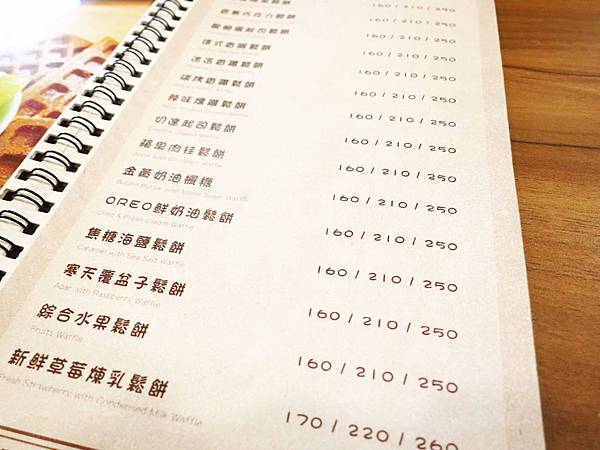 160 / 210 / 250
160 / 210 / 250
160 / 210 / 250
160 / 210 / 250
160 / 210 / 250
辣味燻雞鬆餅
160 / 210 / 250
切達起司鬆餅
160 / 210 / 250
蘋果肉桂鬆餅
160 / 210 / 250
金黃奶油楓糖
160 / 210 / 250
OREO鮮奶油鬆餅
Oreo & Fresh Cream Waffle
160 / 210 / 250
焦糖海鹽鬆餅
Caramel with Sea Salt Waffle
160 / 210 / 250
寒天覆盆子鬆餅
Agar with Raspberry Waffle
160 / 210 / 250
綜合水果鬆餅
Fruits Waffle
160 / 210 / 250
新鮮草莓煉乳鬆餅
Fresh Strawberry with Condensed Milk Waffle
170 / 220 / 260